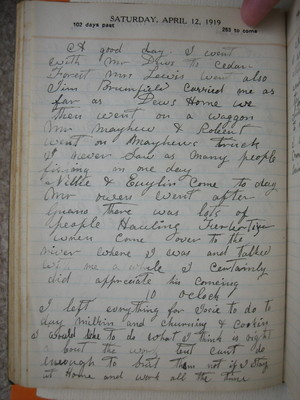 SATURDAY, APRIL 12, 1919
102 days past
263 to come
A good day I went
with Mr Dews to Cedar
Forest Mrs Lewis went also
Jim Brumfield carried me as
far as Dews Home we
then went on a waggon
Mr Mayhew & Robert
went on Mayhews truck
I never saw as many people
fishing in one day
Nillie & Evylin Come to day
Mr owen went after
guano there was lots of
people Hauling Furtertize
when come over to the
river where I was and talked
with me a while I certainly
did appreciate his comeing
10 oclock
I left everything for Docie to do to
day Milkin and churning & Cookin
I would like to do what I think is right
bout the work but can't do
enough to suit them not if I stay
at Home and work all the time